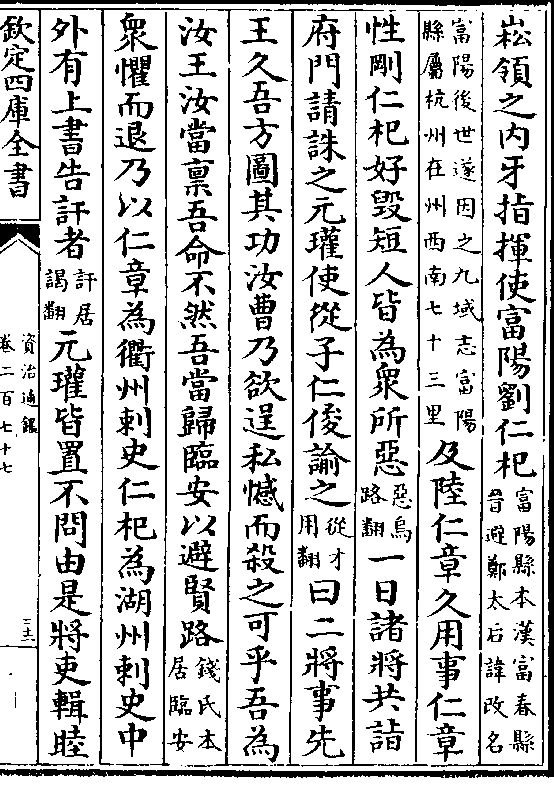 崧領之内牙指揮使富陽劉仁杞富陽縣本漢富春縣
晉避鄭太后諱改名
富陽後世遂因之九域志富陽
縣屬杭州在州西南七十三里及陸仁章久用事仁章
性剛仁杞好毁短人皆為衆所惡惡烏
路翻一日諸將共詣
府門請誅之元瓘使從子仁俊諭之從才
用翻曰二將事先
王久吾方圖其功汝曹乃欲逞私憾而殺之可乎吾為
汝王汝當稟吾命不然吾當歸臨安以避賢路錢氏本
居臨安
衆懼而退乃以仁章為衢州刺史仁杞為湖州刺史中
外有上書告訐者訐居
謁翻元瓘皆置不問由是將吏輯睦
欽定四庫全書
資治通鑑
卷二百七十七